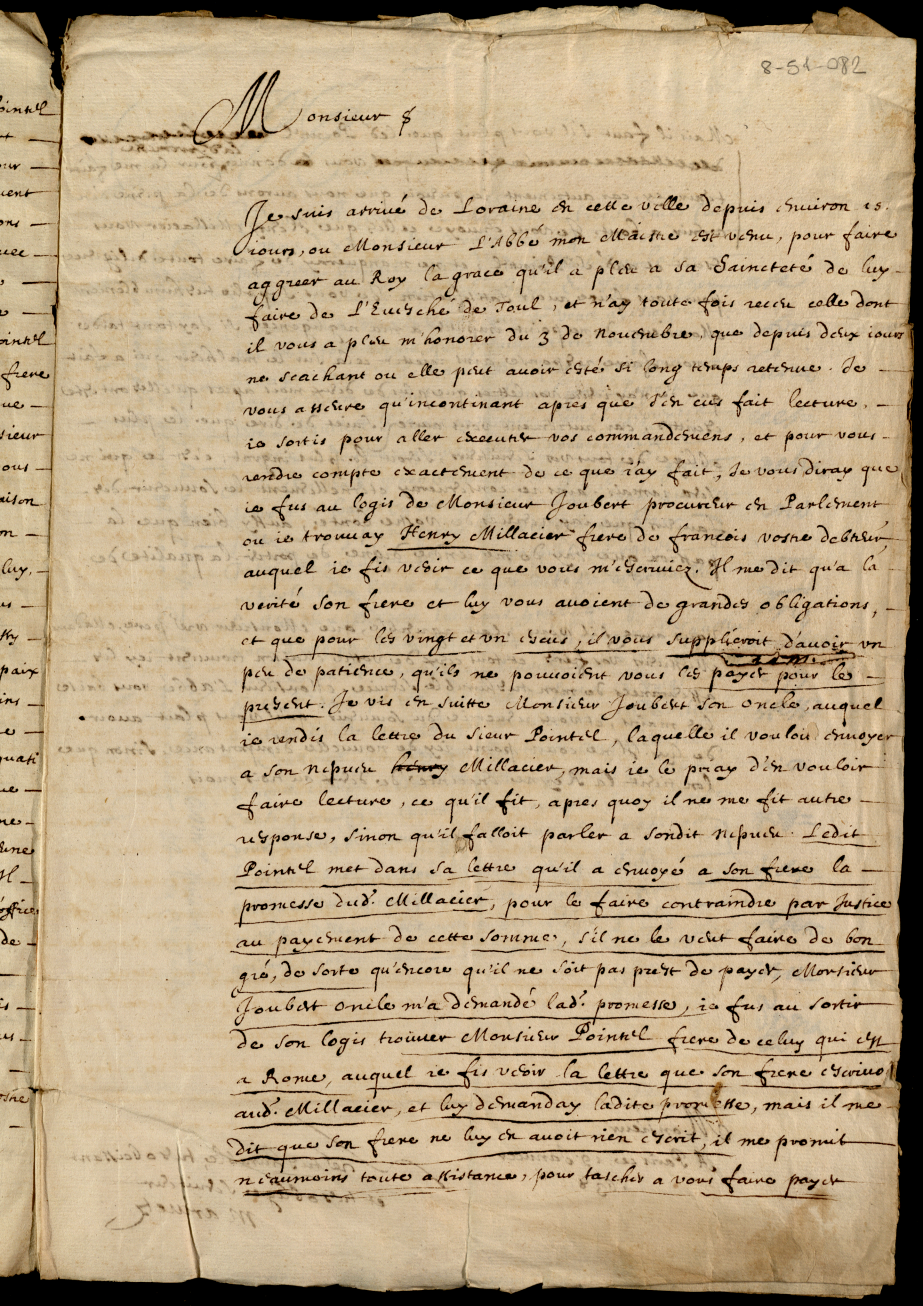 8-51-082
Monsieur
Je suis arrivé de Loraine en cette ville depuis environ 15.
iours, ou Monsieur L'Abbé mon Maistre est venu, pour faire
aggreer au Roy la grace qu'il a pleu a sa Saincteté de luy
faire de L'Euesché de Toul, et n'ay toute fois receu celle dont
il vous a pleu m'honorer du 3 de Nouembre, que depuis deux iours
ne scachant ou elle peut avoir esté si long temps retenue. Je
vous asseure qu'incontinant apres que j'en eus fait lecture,
ie sortis pour aller executer vos commandemens, et pour vous
rendre compte exactement de ce que i'ay fait, Je vous diray que
ie fus au logis de Monsieur Joubert procureur en Parlement
ou ie trouuay Henry Millacier frere de francois vostre debteur
auquel ie fis veoir ce que vous m'escriuiez. Il me dit qu'a la
verité son frere et luy vous auoient de grandes obligations,
et que pour les vingt et vn escus, il vous supplieroit d'auoir vn
peu de patience, qu'ils ne pouuoient vous les payer pour le
present. Je vis en suitte Monsieur Joubert son oncle, auquel
ie rendis la lettre du sieur Pointel, laquelle il voulou enuoyer
a son nepueu henry Millacier, mais ie le priay d'en vouloir
faire lecture, ce qu'il fit, apres quoy il ne me fit autre
response, sinon qu'il falloit parler a sondit nepueu. Ledit
Pointel met dans sa lettre qu'il a enuoyé a son frere la
promesse dud. Millacier, pour le faire contraindre par Justice
au payement de cette somme, s'il ne le veut faire de bon
gré, de sorte qu'encore qu'il ne soit pas prest de payer, Monsieur
Joubert oncle m'a demandé lad. promesse, ie fus au sortir
de son logis trouuer Monsieur Pointel frere de celuy qui est
a Rome, auquel ie fis veoir la lettre que son frere escriuo
aud. Millacier, et luy demanday ladite promesse, mais il me
dit que son frere ne luy en auoit rien escrit, il me promit
neaumoins toute assistance, pour tascher a vous faire payer